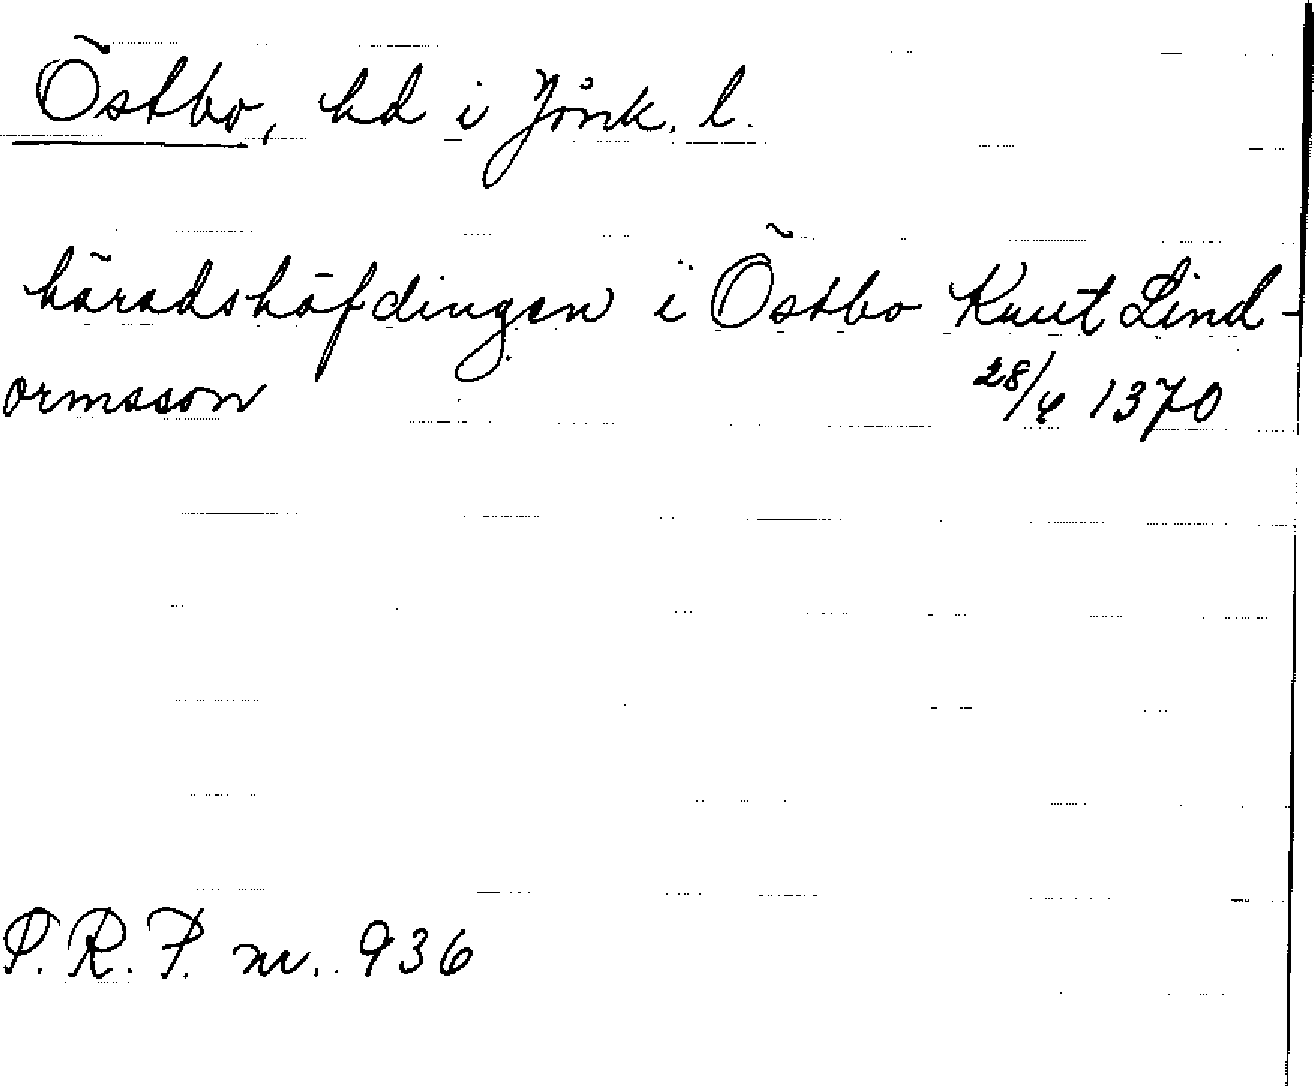 Östbo, hd i Jönk. l.
häradshöfdingen i Östbo Knut Lind-
ormsson 28/4 1370
P.R.F. nr. 936